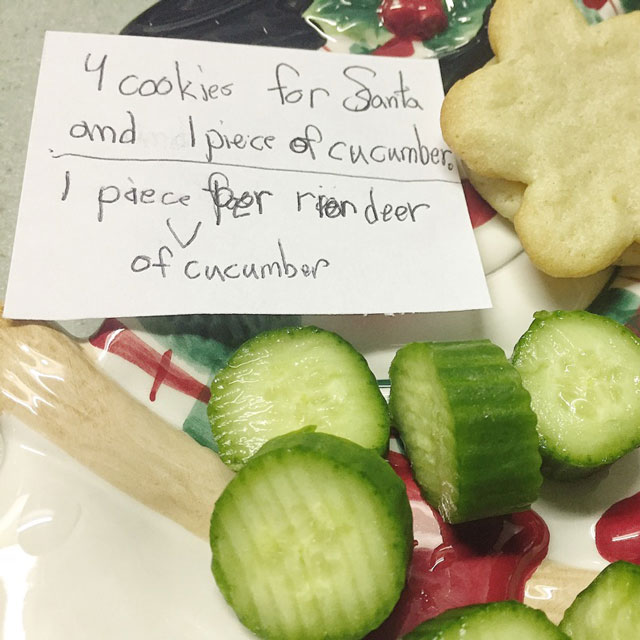 4 cookies for Santa
and 1 piece of cucumber.
1 piece per riendeer
of cucumber